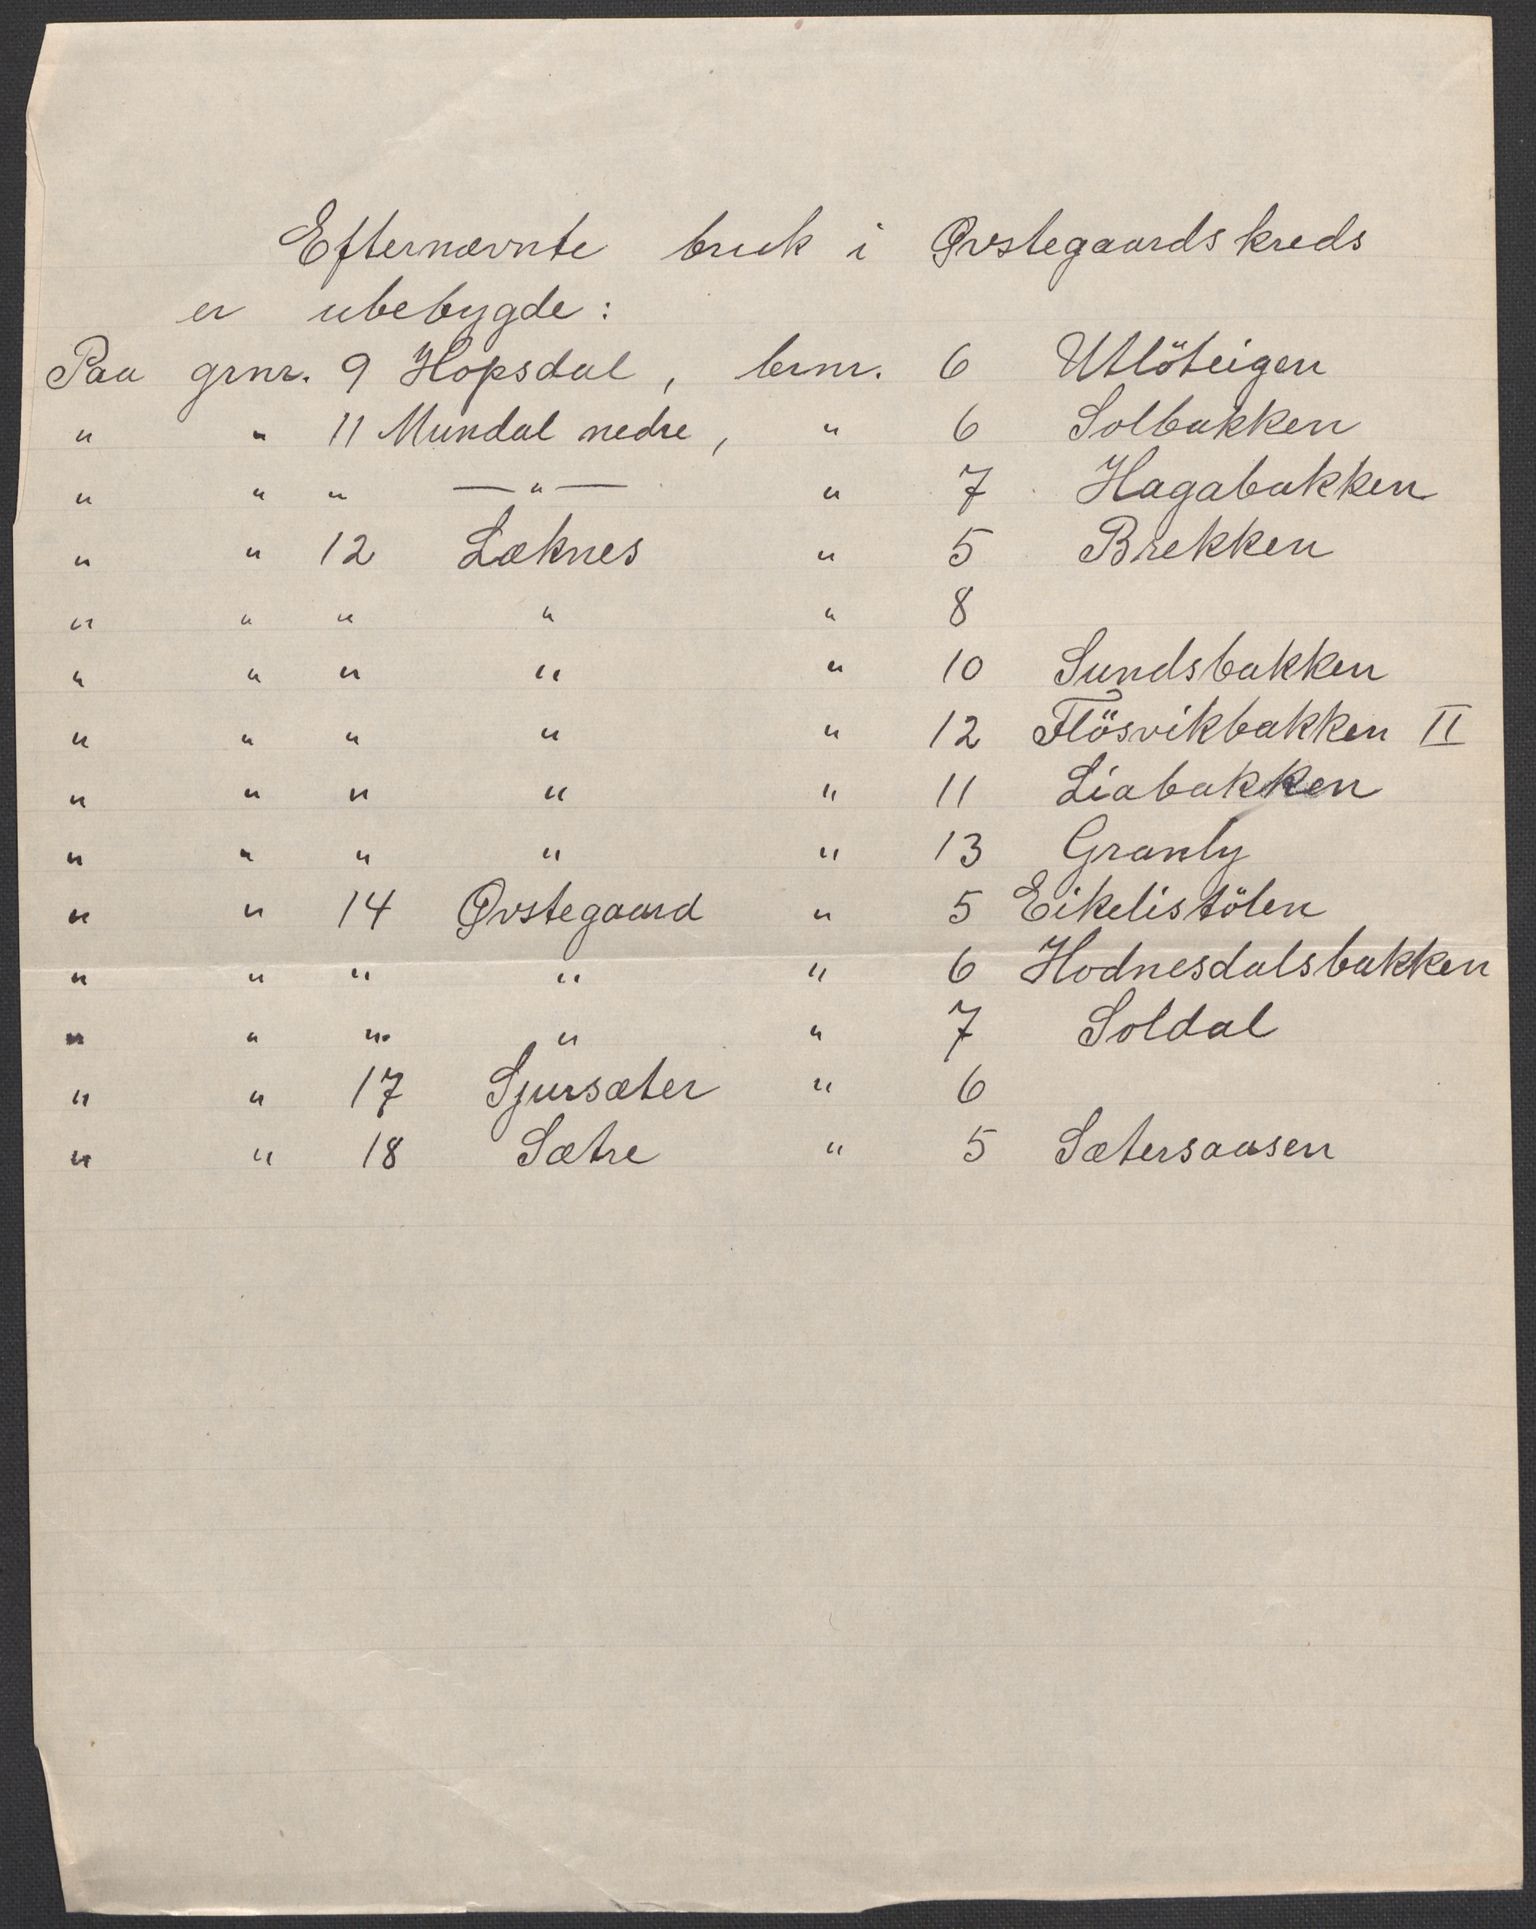 Efternævnte bruk i Øvstegaards kreds
er ubebygde:
Paa grnr. 9 Hopsdal, brnr. 6 Utlöteigen
" " 11 Mundal nedre, " 6 Solbakken
" " " —"— " 7 Hagabakken
" " 12 Læknes " 5 Brekken
" " " " " 8
" " " " " 10 Sundsbakken
" " " " " 12 Flösvikbakken II
" " " " " 11 Liabakken
" " " " " 13 Granly
" " 14 Øvstegaard " 5 Eikelistölen
" " " " " 6 Hodnesdalsbakken
" " " " " 7 Soldal
" " 17 Sjursæter " 6
" " 18 Sætre " 5 Sætersaasen